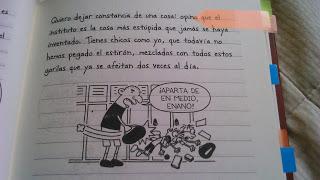 Quiero dejar constancia de una cosa: opino que el
instituto es la cosa más estúpida que jamás se haya
inventado. Tienes chicos como yo, que todavía no
hemos pegado el estirón, mezclados con todos estos
gorilas que ya se afeitan dos veces al día.
¡APARTA DE
EN MEDIO,
ENANO!